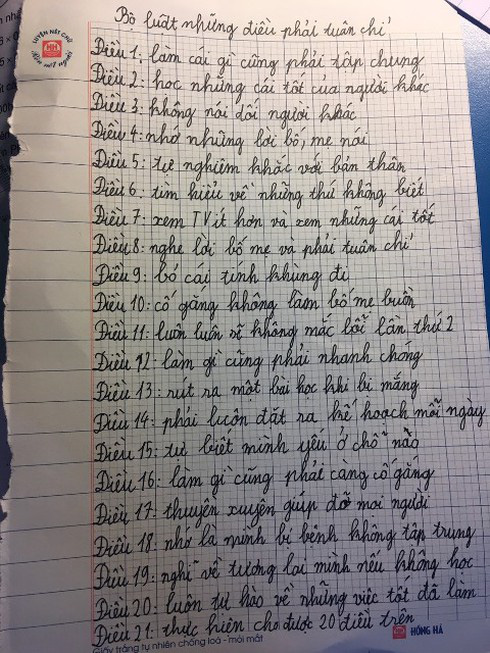 LUYỆN NÉT CHỮ
Rèn nết người
HH
Bộ luật những điều phải tuân chỉ
Điều 1: làm cái gì cũng phải tập chung
Điều 2: học những cái tốt của người khác
Điều 3: không nói dối người khác
Điều 4: nhớ những lời bố, mẹ nói
Điều 5: tự nghiêm khắc với bản thân
Điều 6: tìm hiểu về những thứ không biết
Điều 7: xem TV ít hơn và xem những cái tốt
Điều 8: nghe lời bố mẹ và phải tuân chỉ
Điều 9: bỏ cái tính khung đi
Điều 10: cố gắng không làm bố mẹ buồn
Điều 11: luôn luôn sẽ không mắc lỗi lần thứ 2
Điều 12: làm gì cũng phải nhanh chóng
Điều 13: rút ra một bài học khi bị mắng
Điều 14: phải luôn đặt ra kế hoạch mỗi ngày
Điều 15: tự biết mình yếu ở chỗ nào
Điều 16: làm gì cũng phải càng cố gắng
Điều 17: thuyên xuyên giúp đỡ mọi người
Điều 18: nhớ là mình bị bệnh không tập trung
Điều 19: nghĩ về tương lai mình nếu không học
Điều 20: luôn tự hào về những việc tốt đã làm
Điều 21: thực hiện cho được 20 điều trên
Giấy trắng tự nhiên chống loá - mỏi mắt
HH HỒNG HÀ